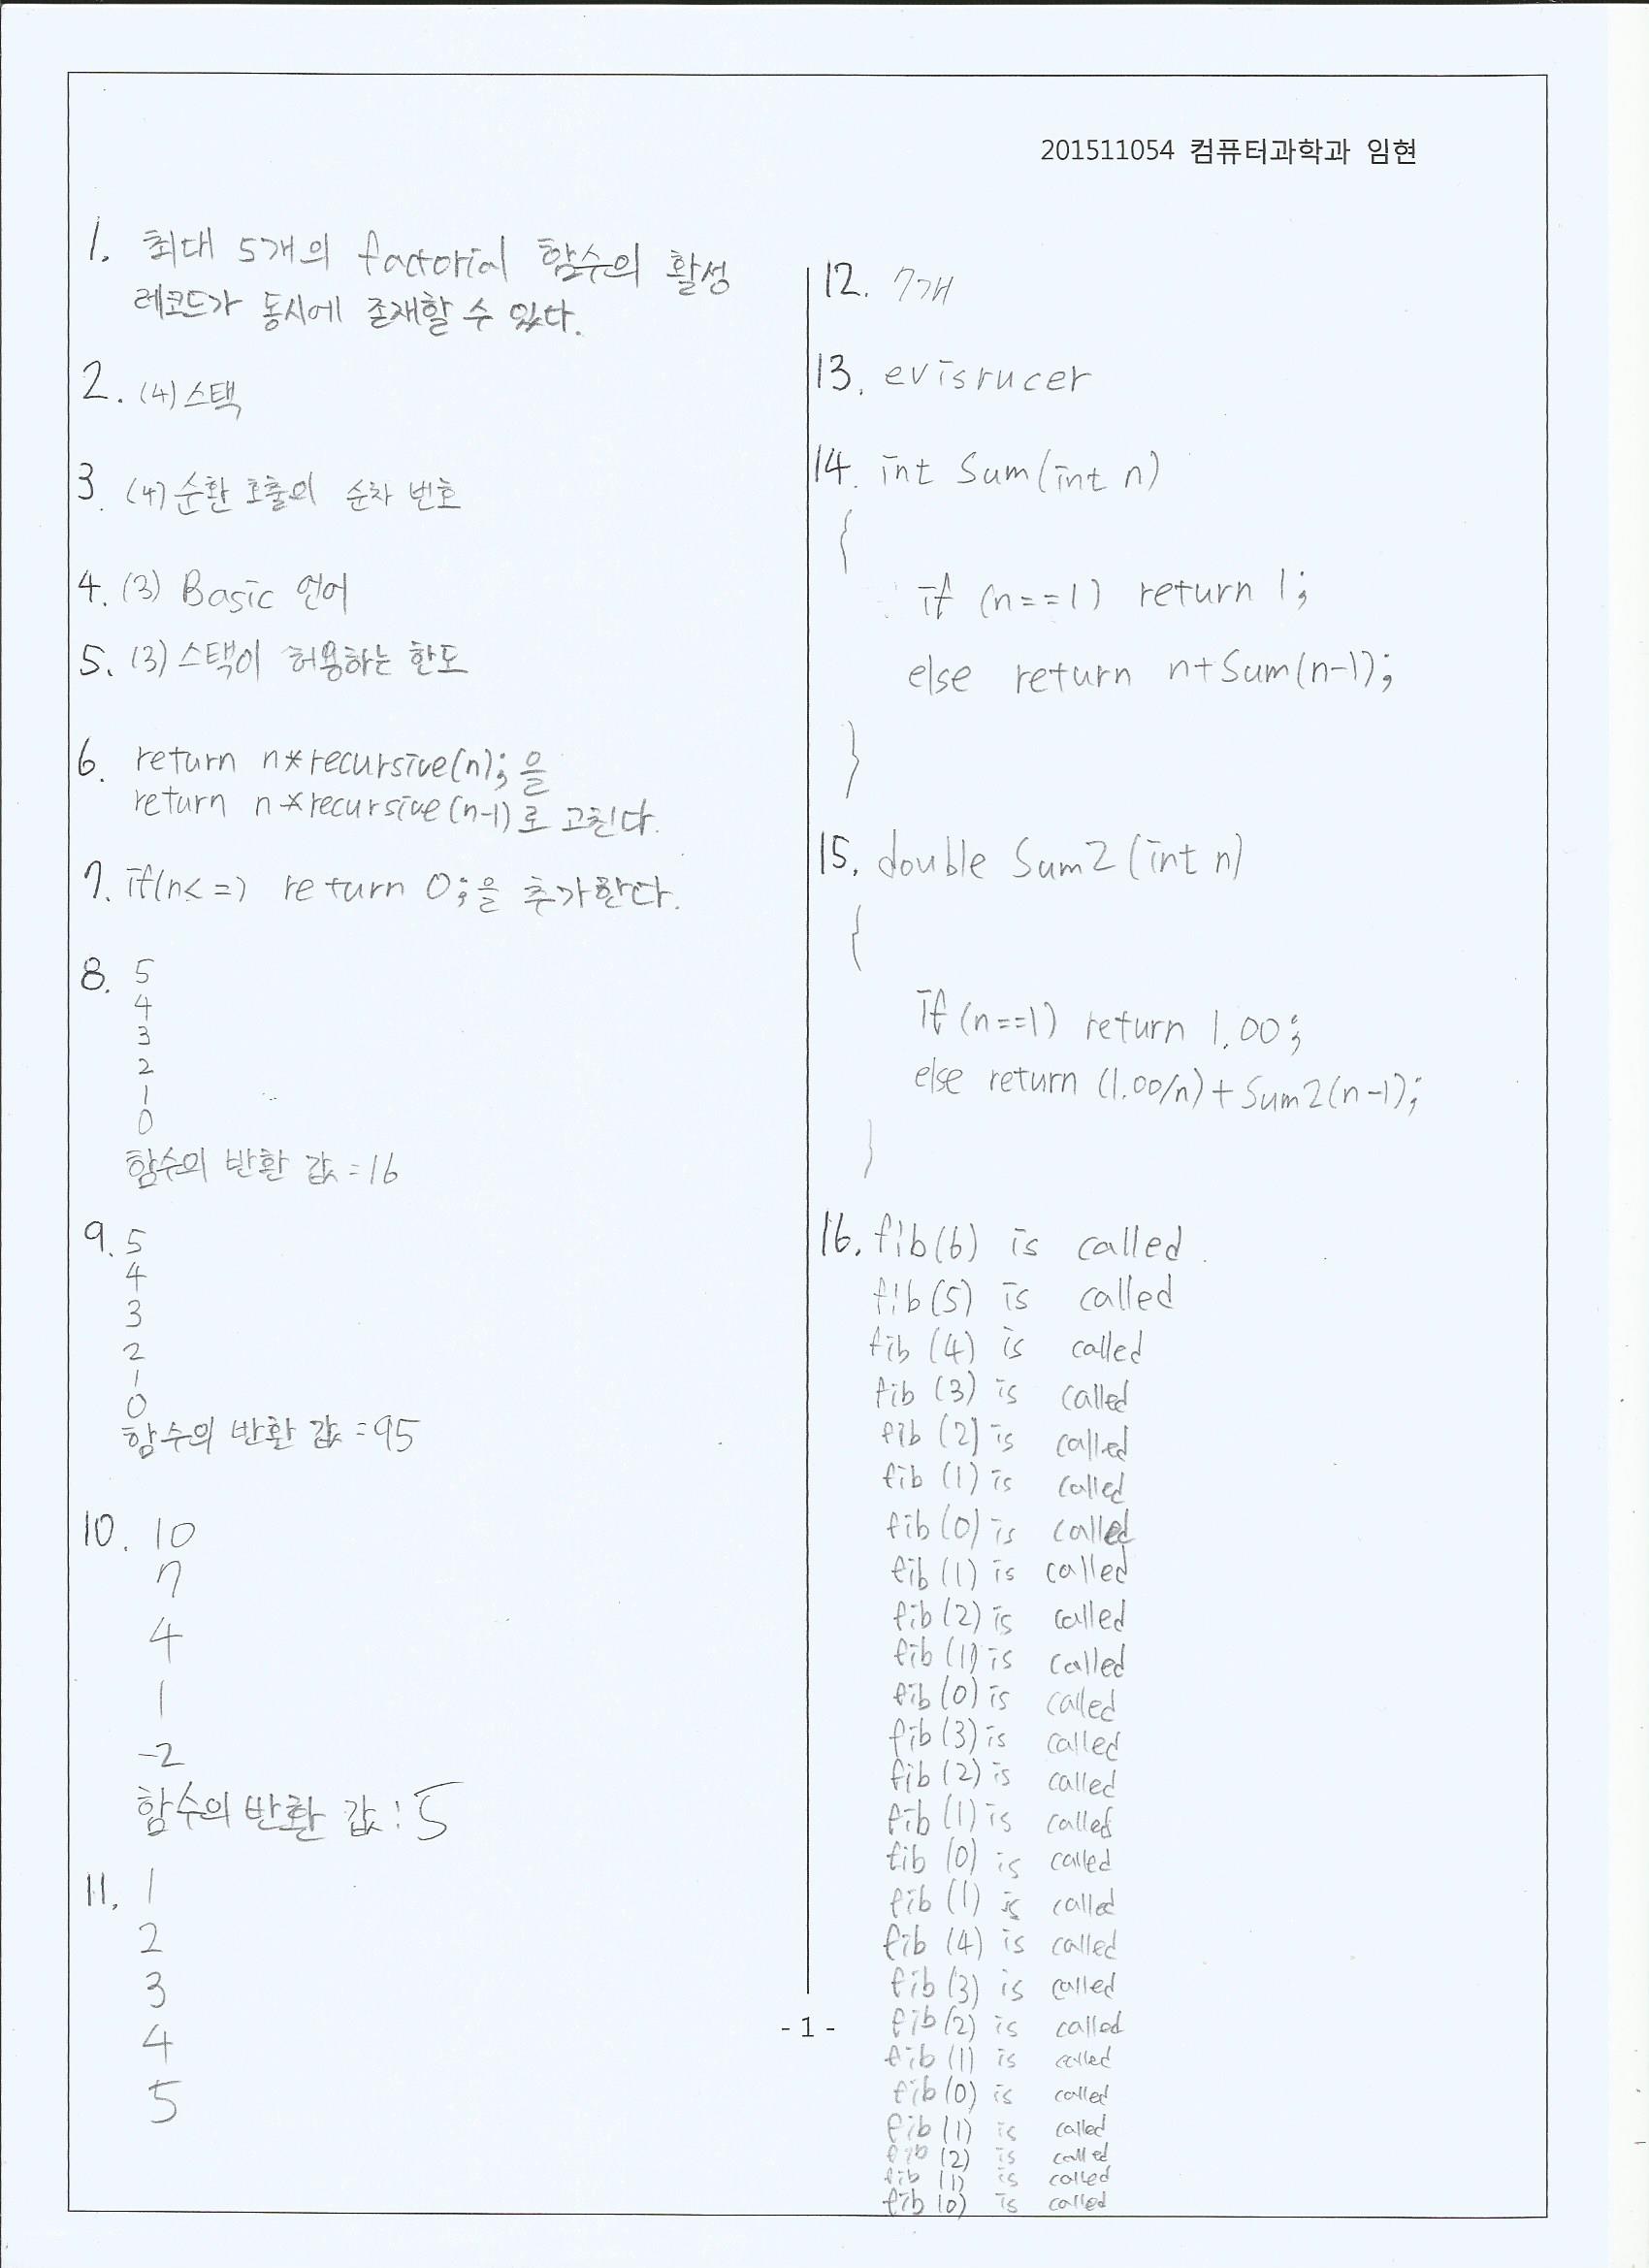 201511054 컴퓨터과학과 임현
1. 최대 5개의 factorial 함수의 활성
레코드가 동시에 존재할 수 있다.
2. (4) 스택
3. (4) 순환 호출의 순차 번호
4. (3) Basic 언어
5. (3) 스택이 허용하는 한도
6. return n*recursive(n); 을
return n*recursive(n-1)로 고친다.
7. if(n<=) return 0;을 추가한다.
8. 5
4
3
2
1
0
함수의 반환 값 = 16
9. 5
4
3
2
1
0
함수의 반환 값 = 95
10. 10
7
4
1
-2
함수의 반환 값 : 5
11. 1
2
3
4
5
12. 7개
13. evisrucer
14. int Sum(int n)
{
if (n==1) return 1;
else return n+Sum(n-1);
}
15. double Sum2(int n)
{
if (n==1) return 1.00;
else return (1.00/n)+Sum2(n-1);
}
16. fib(6) is called.
fib(5) is called
fib (4) is called
fib (3) is called
fib (2) is called
fib (1) is called
fib (0) is called
fib (1) is called
fib (2) is called
fib (1) is called
fib (0) is called
fib (3) is called
fib (2) is called
fib (1) is called
fib (0) is called
fib (1) is called
fib (4) is called
fib (3) is called
fib (2) is called
fib (1) is called
fib (0) is called
fib (1) is called
fib (2) is called
fib (1) is called
fib (0) is called
- 1 -